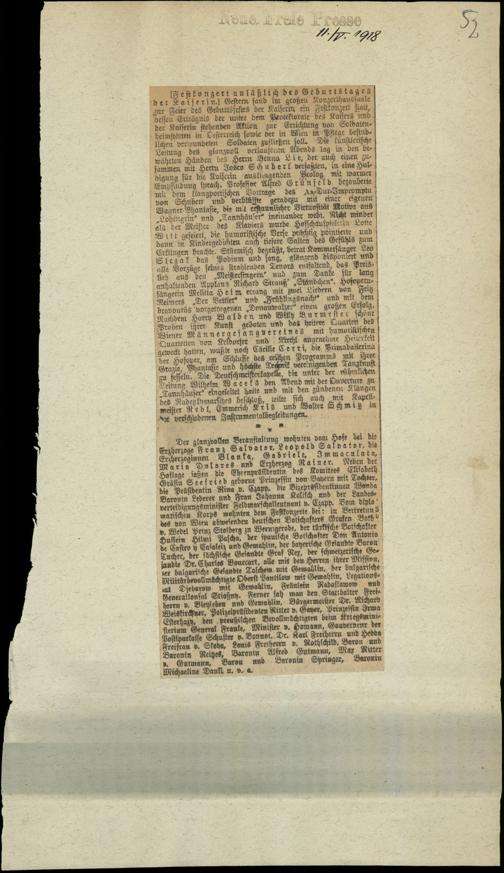 Neue Freie Presse
11./V. 1918
52
[Festkonzert anläßlich des Geburtstages
der Kaiserin.] Gestern fand im großen Konzerthaussaale
zur Feier des Geburtsfestes der Kaiserin ein Festkonzert statt,
dessen Erträgnis der unter dem Protektorate des Kaisers und
der Kaiserin stehenden Aktion zur Errichtung von Soldaten-
heimstätten in Oesterreich sowie der in Wien in Pflege befind-
lichen verwundeten Soldaten zufließen soll. Die künstlerische
Leitung des glanzvoll verlaufenen Abends lag in den be-
währten Händen des Herrn Benno Lie, der auch einen zu-
sammen mit Herrn Josef Schuberl verfaßten, in eine Hul-
digung für die Kaiserin ausklingenden Prolog mit warmer
Empfindung sprach. Professor Alfred Grünfeld bezauberte
mit dem klangpoetischen Vortrage des As-Dur-Impromptu
von Schubert und verblüffte geradezu mit einer eigenen
Wagner-Phantasie, die mit erstaunlicher Virtuosität Motive aus
„Lohengrin" und „Tannhäuser" ineinander webt. Nicht minder
als der Meister des Klaviers wurde Hofschauspielerin Lotte
Witt gefeiert, die humoristische Verse prächtig pointierte und
dann in Kindergedichten auch tiefere Saiten des Gefühls zum
Erklingen brachte. Stürmisch begrüßt, betrat Kammersänger Leo
Slezak das Podium und sang, glänzend disponiert und
alle Vorzüge seines strahlenden Tenors entfaltend, das Preis-
lied aus den „Meistersingern" und zum Danke für lang
anhaltenden Applaus Richard Strauß' „Ständchen". Hofopern-
sängerin Melitta Heim errang mit zwei Liedern von Fritz
Reimers „Der Bettler" und „Frühlingsnacht" und mit dem
bravourös vorgetragenen „Donauwalzer" einen großen Erfolg.
Nachdem Harry Walden und Willy Burmester schöne
Proben ihrer Kunst geboten und das heitere Quartett des
Wiener Männergesangvereines mit humoristischen
Quartetten von Keldorfer und Kretzl angenehme Heiterkeit
geweckt hatten, wußte noch Cäcilie Cerri, die Primaballerina
der Hofoper, am Schlusse des reichen Programms mit ihrer
Grazie, Phantasie und höchste Technik vereinigenden Tanzkunst
zu fesseln. Die Deutschmeisterkapelle, die unter der persönlichen
Leitung Wilhelm Waceks den Abend mit der Ouverture zu
„Tannhäuser" eingeleitet hatte und mit den zündenden Klängen
des Radetzkymarsches beschloß, teilte sich auch mit Kapell-
meister Redl, Emmerich Kris und Walter Schmitz in
die verschiedenen Instrumentalbegleitungen.
* * *
Der glanzvollen Veranstaltung wohnten vom Hofe bei die
Erzherzoge Franz Salvator, Leopold Salvator, die
Erzherzoginnen Blanka, Gabriele, Immaculata,
Maria Dolores und Erzherzog Rainer. Neben der
Hofloge saßen die Ehrenpräsidentin des Komitees Elisabeth
Gräfin Seefried geborne Prinzessin von Bayern mit Tochter,
die Präsidentin Nina v. Czapp, die Vizepräsidentinnen Wanda
Baronin Lederer und Frau Johanna Kolisch und der Landes-
verteidigungsminister Feldmarschalleutnant v. Czapp. Vom diplo-
matischen Korps wohnten dem Festkonzerte bei: in Vertretung
des von Wien abwesenden deutschen Botschafters Grafen Both.
v. Wedel Prinz Stolberg zu Wernigerode, der türkische Botschafter
Hussein Hilmi Pascha, der spanische Botschafter Don Antonio
de Castro y Casaleiz und Gemahlin, der bayerische Gesandte Baron
Tucher, der sächsische Gesandte Graf Rex, der schweizerische Ge-
sandte Dr. Charles Bourcart, alle mit den Herren ihrer Mission,
der bulgarische Gesandte Toschew mit Gemahlin, der bulgarische
Militärbevollmächtigte Oberst Pantilow mit Gemahlin, Legations-
rat Djebarow mit Gemahlin, Fräulein Radoslawow und
Generalkonsul Stiaßny. Ferner sah man den Statthalter Frei-
herrn v. Bleyleben und Gemahlin, Bürgermeister Dr. Richard
Weiskirchner, Polizeipräsidenten Ritter v. Gayer, Prinzessin Irma
Esterhazy, den preußischen Bevollmächtigten beim Kriegsmini-
sterium General Franke, Minister v. Homann, Gouverneur der
Postsparkasse Schuster v. Bonnot, Dr. Karl Freiherrn und Hedda
Freifrau v. Skoda, Louis Freiherrn v. Rothschild, Baron und
Baronin Reitzes, Baronin Alfred Gutmann, Max Ritter
v. Gutmann, Baron und Baronin Springer, Baronin
Michaeline Dankl u. v. a.